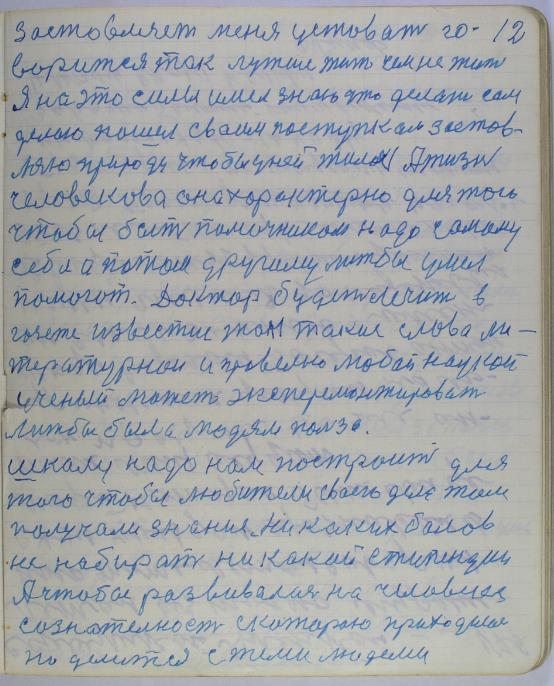 Застовляет меня уставать го- 12
ворится так лутше жить чем не жит
Я на это силы имел знаю что делаю сам
делаю пошел своим поступкам застов-
ляю природу чтобы у ней жила А жизн
человекова она характерно для того
чтобы быть помочником надо самому
себе а потом другому лижбы умел
помогат. Доктор будет лечит в
газете известие таки слова ли-
тературнои и провелно любой наукой
ученый может эксперемонтироват
лижбы была людям полза.
Школу надо нам построить для
того чтобы любители своего дела там
получали знания. Никаких балов
не набират ни какой стипендии
А чтобы развивалас на человеке
сознателност с которою приходилос
по делится с теми людеми